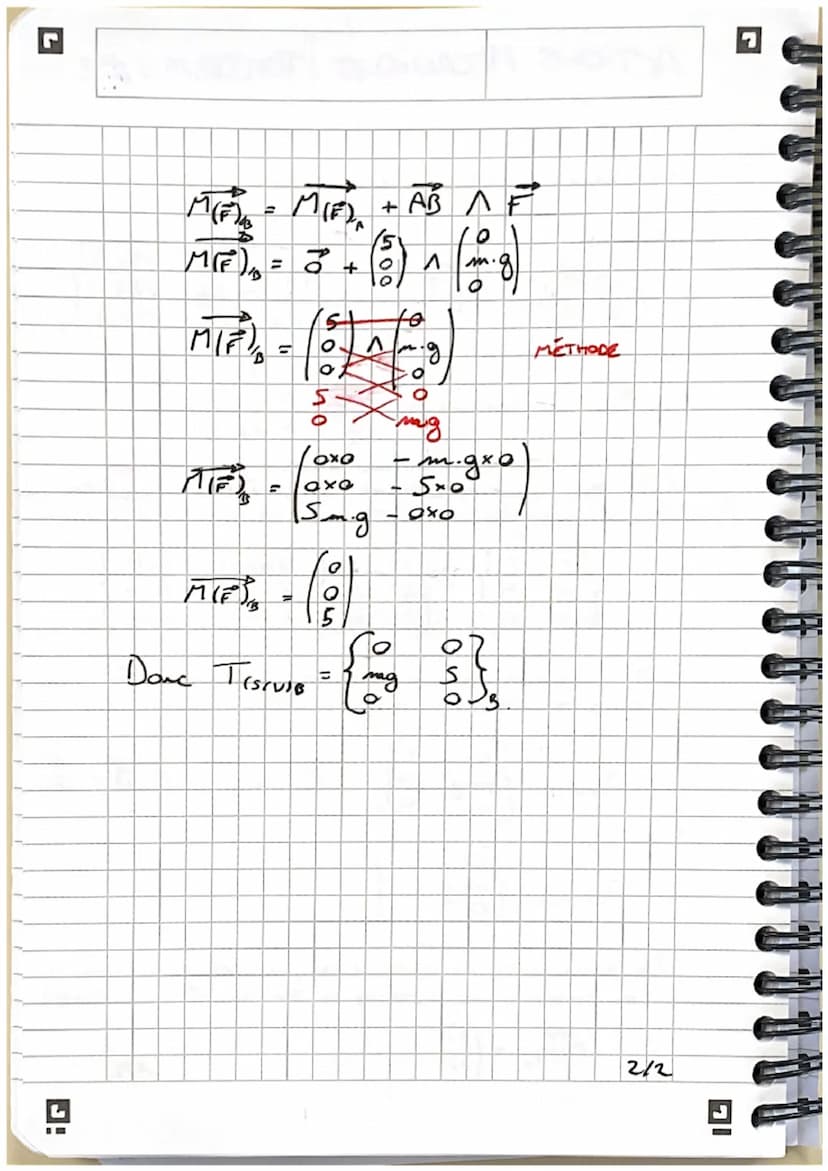 M(F)/B = M(F)/A + AB ∧ F
M(F)/B = 0 + (5 0 0) ∧ (0 m.g 0)
M(F)/B = (5 0 0) ∧ (0 m.g 0) MÉTHODE
5 0
0 mg
M(F)/B = (0x0 - m.g x 0
0x0 - 5x0
5m.g - 0x0)
M(F)/B = (0 0 5)
Donc T(S/U)B = {0 0
mg 5
0 0}B.
2/2